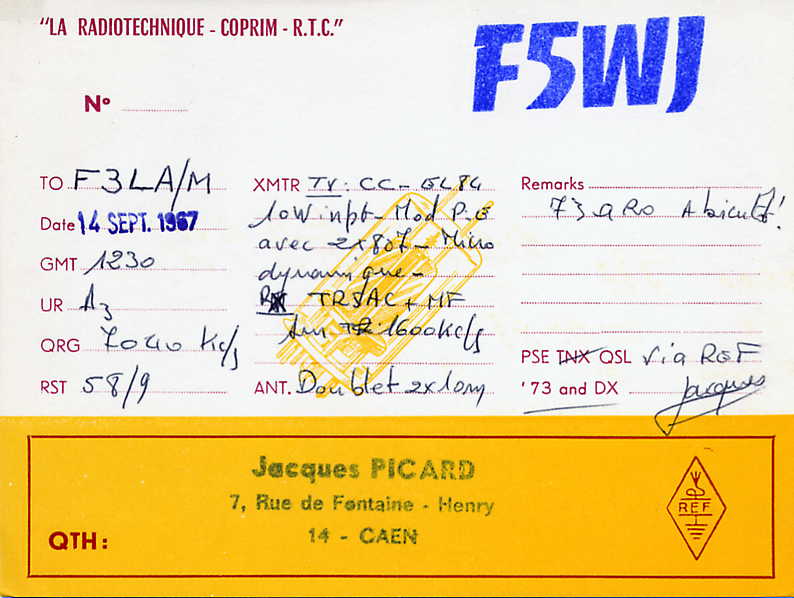 "LA RADIOTECHNIQUE - COPRIM - R.T.C."
F5WJ
N°
TO F3LA/M
Date 14 SEPT. 1967
GMT 1230
UR A3
QRG 7040 Kc/s
RST 58/9
XMTR TX: CC - EL84
10W inpt - Mod P.G
avec 2x807 - Micro
dynamique -
RX TR5AC + MF
sur 1600Kc/s
ANT. Doublet 2x10m
Remarks
73 QRO A bientôt!
PSE TNX QSL via REF
'73 and DX Jacques
Jacques PICARD
7, Rue de Fontaine - Henry
14 - CAEN
QTH:
REF